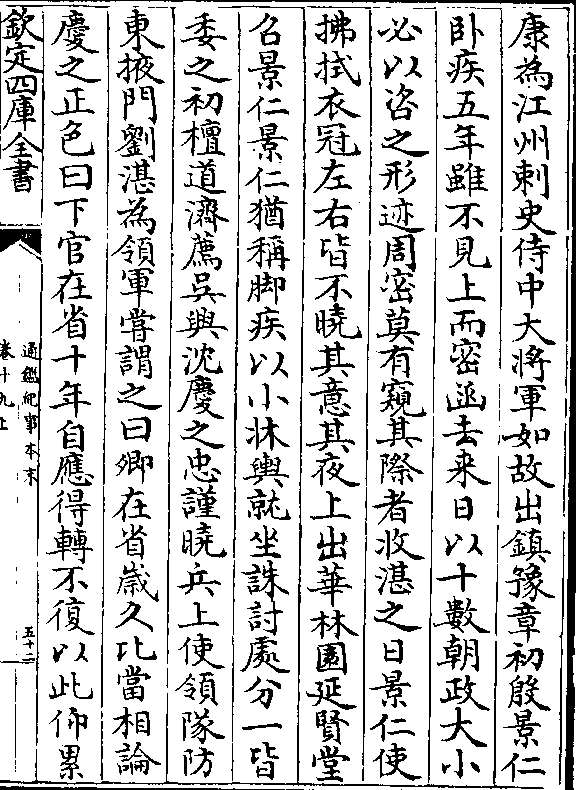 康為江州刺史侍中大將軍如故出鎮豫章初殷景仁
卧疾五年雖不見上而密函去来日以十數朝政大小
必以咨之形迹周密莫有窺其際者收湛之日景仁使
拂拭衣冠左右皆不曉其意其夜上出華林園延賢堂
召景仁景仁猶稱脚疾以小牀輿就坐誅討處分一皆
委之初檀道濟薦吳興沈慶之忠謹曉兵上使領隊防
東掖門劉湛為領軍嘗謂之曰卿在省嵗久比當相論
慶之正色曰下官在省十年自應得轉不復以此仰累
欽定四庫全書
通鑑紀事本末
卷十九上
五十二